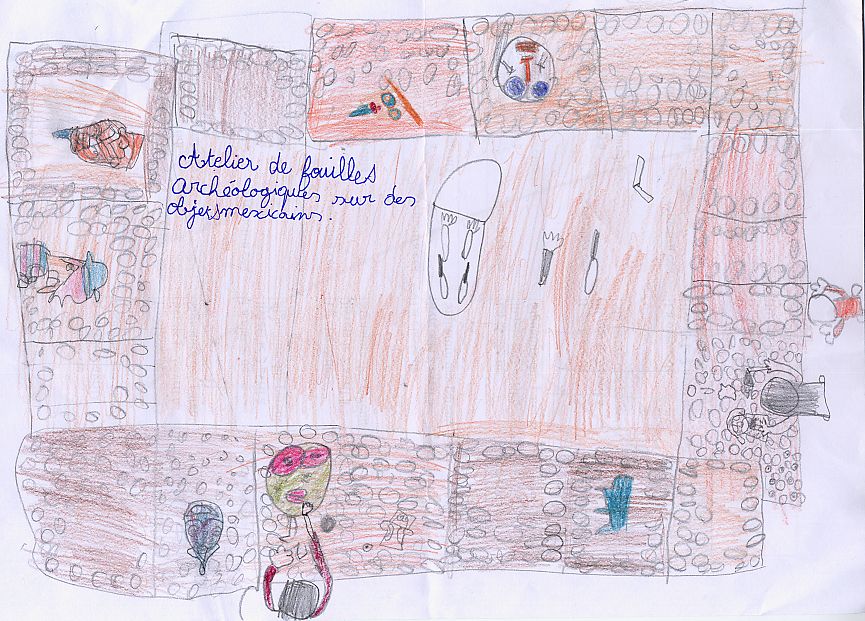 Atelier de fouilles
archéologiques sur des
objersmexicains.